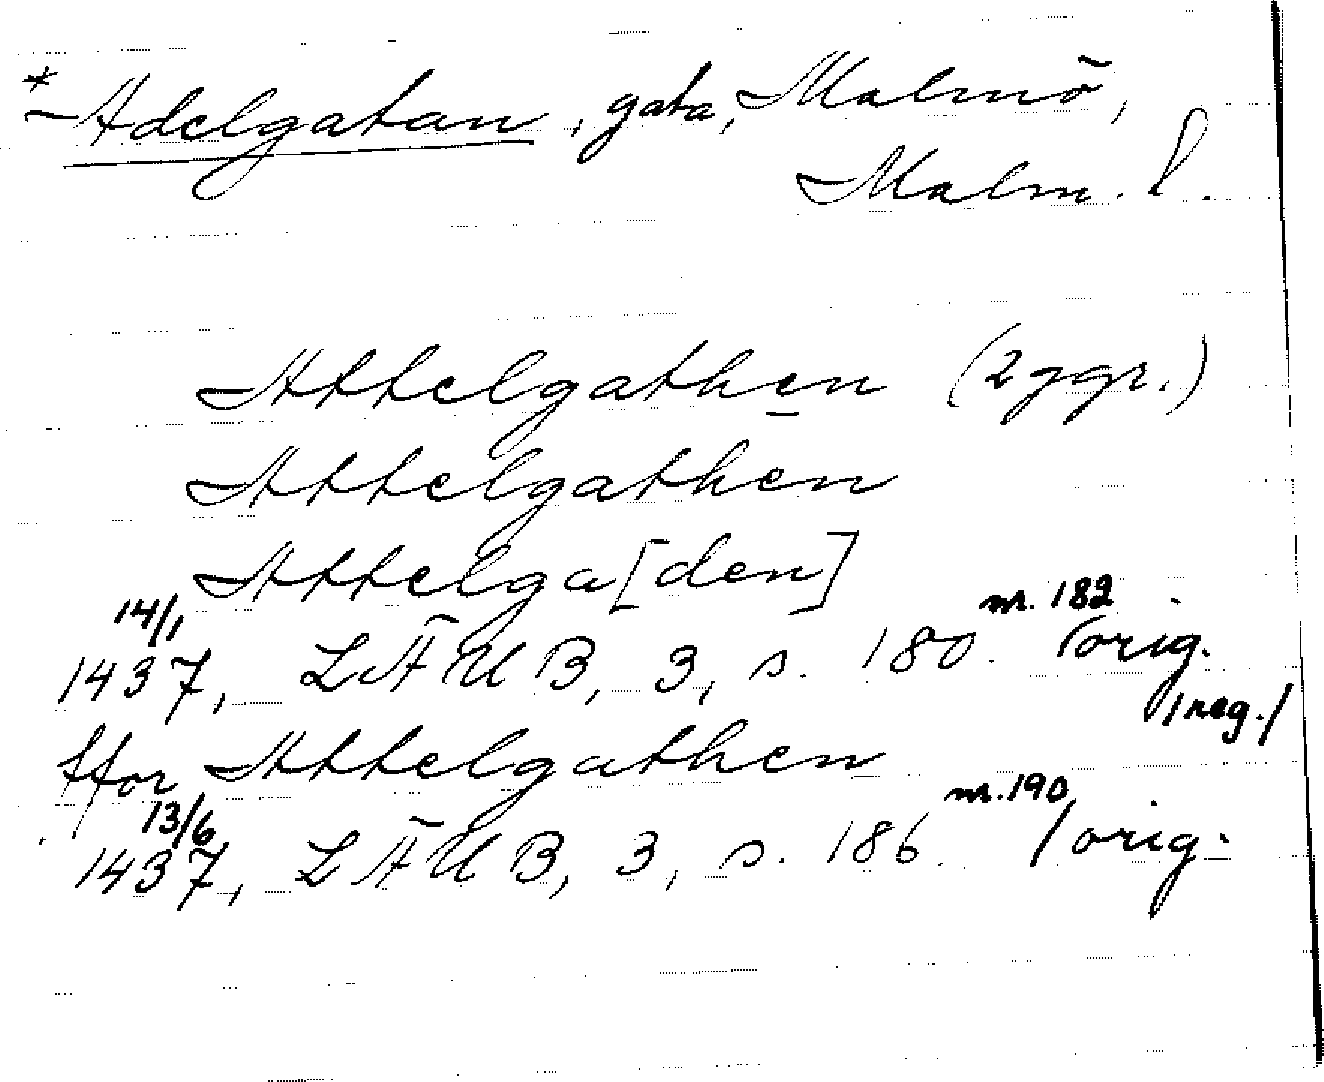 * Adelgatan, gata, Malmö,
Malm. l.
Attelgathen (2 ggr.)
Attelgathen
Attelga[den]
14/1 nr. 182
1437, LÄUB, 3, s. 180. /orig.
/neg./
ffor Attelgathen
13/6 nr. 190
1437, LÄUB, 3, s. 186. /orig.